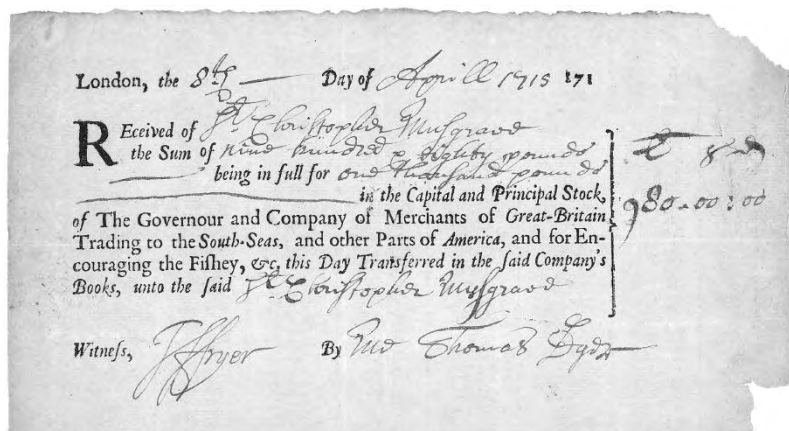 London, the 8th Day of Aprill 1715 171
REceived of Sr. Christopher Musgrave
the Sum of nine hundred & Eighty pounds
being in full for one thousand pounds
in the Capital and Principal Stock,
of The Governour and Company of Merchants of Great-Britain
Trading to the South-Seas, and other Parts of America, and for En-
couraging the Fiſhey, &c, this Day Tranſferred in the ſaid Company's
Books, unto the ſaid Sr. Christopher Musgrave
£ s d
980-00:00
Witneſs, Fryer By me Thomas